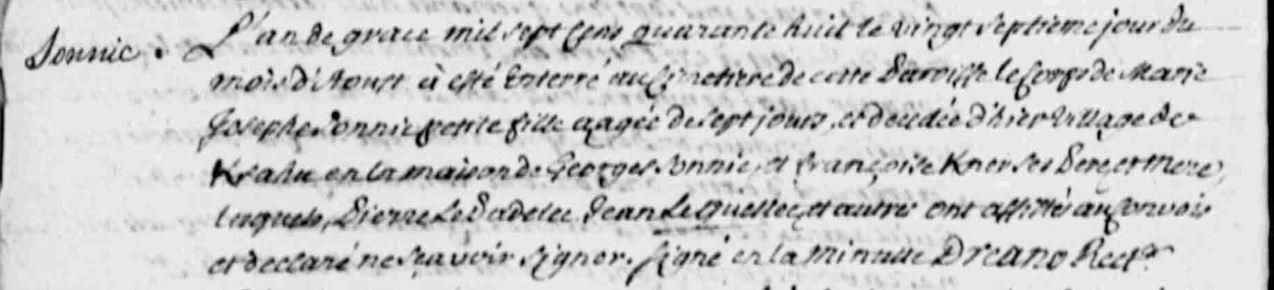 Sonnic. L'an de grace mil sept cens quarante huit le vingt septieme jour du
mois d'Aoust à esté Enterré au Cimetiere de cette Paroisse le Corps de Marie
Josephe Sonnic petite fille aagée de sept jours, et decedée d'hier village de
en la maison de Georges Sonnic, et Françoise ses Pere et Mere,
lesquels, Pierre Le Badelec Jean Le Quellec, et autres ont assistés au Convois
et declaré ne sçavoir signer. signé en la minutte Dreano Rectr